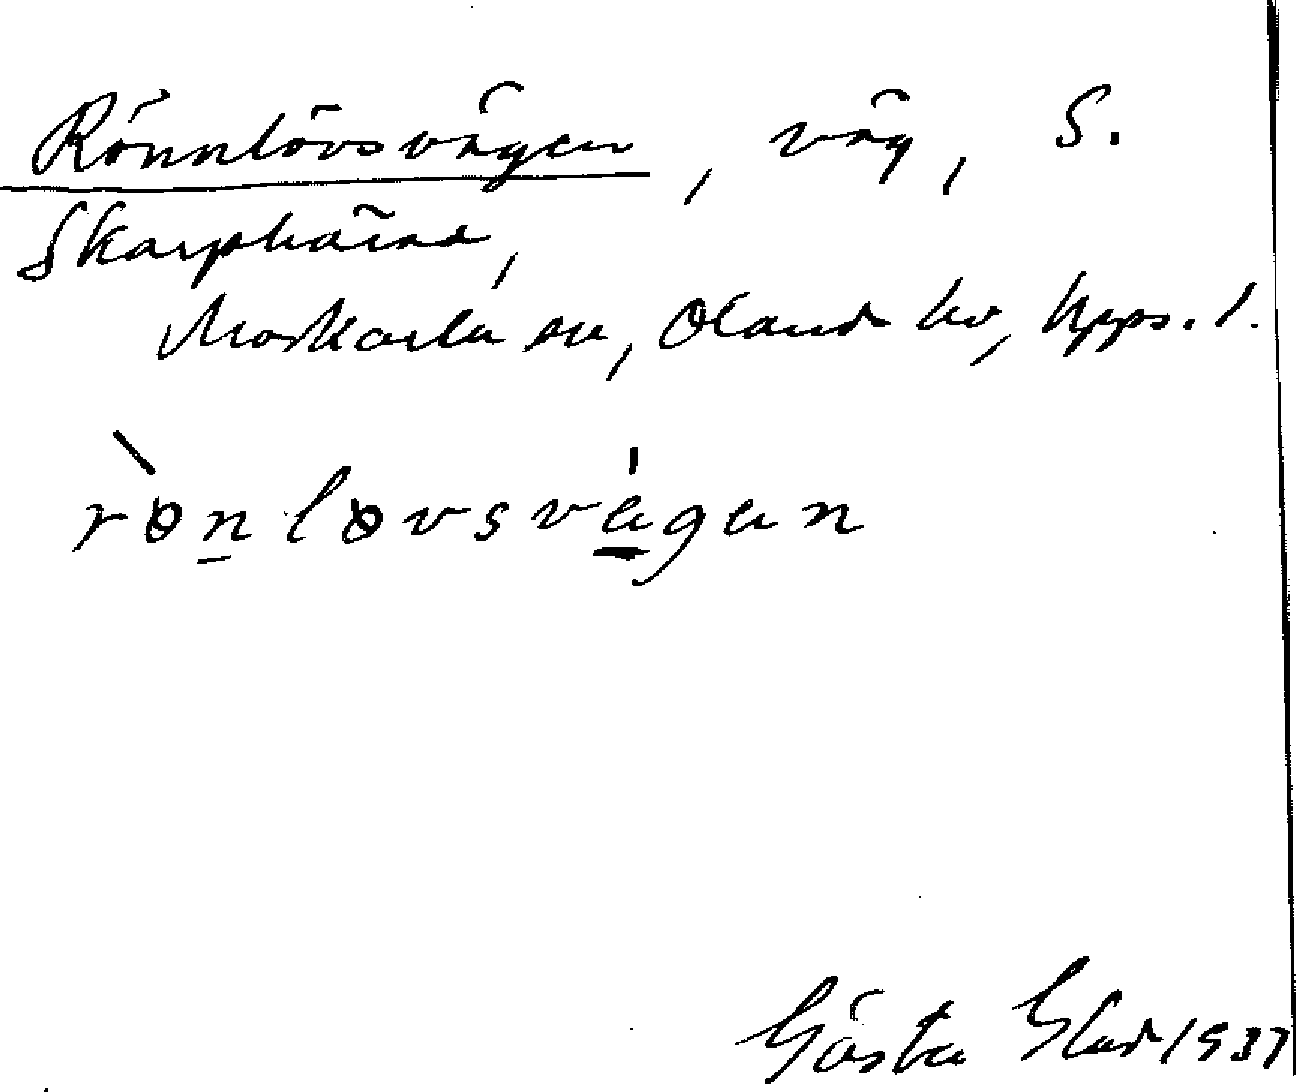 Rönnlövsvägen, väg, S.
Skarpböna,
Morkarla sn, Olands hd, Upps. l.
rònlovsvágan
Gösta 1937